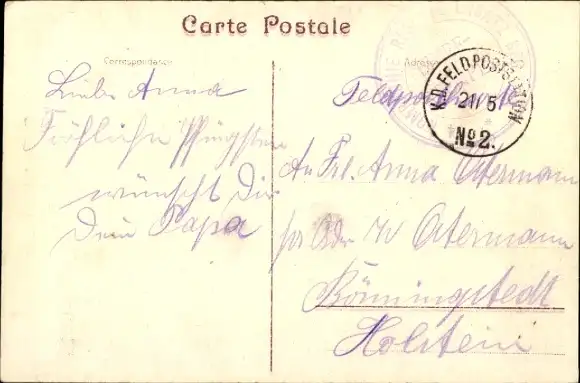 Carte Postale
Correspondance
Adresse
K.D. FELDPOSTSTATION
21 5
No 2.
Liebe Anna
Fröhliche Pfingsten
wünscht Dir
Dein Papa
Feldpostkarte
An Frl. Anna Ostermann
Ostermann
Bönningstedt
Holstein